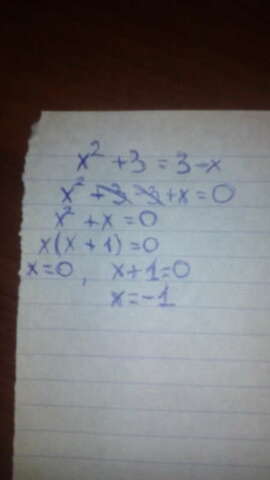 x² + 3 = 3 - x
x² + 3 - 3 + x = 0
x² + x = 0
x(x + 1) = 0
x = 0, x + 1 = 0
x = -1